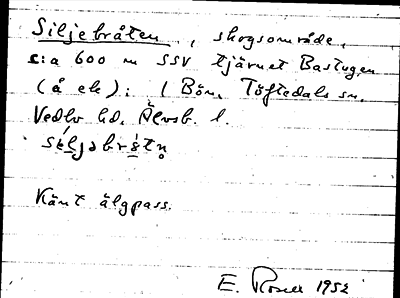 Siljebråten, skogsområde,
c:a 600 m SSV tjärnet Bastugen
(å ek): 1 Bön, Töftedals sn,
Vedbo hd, Älvsb. l.
Känt älgpass.
E. Rosell 1952